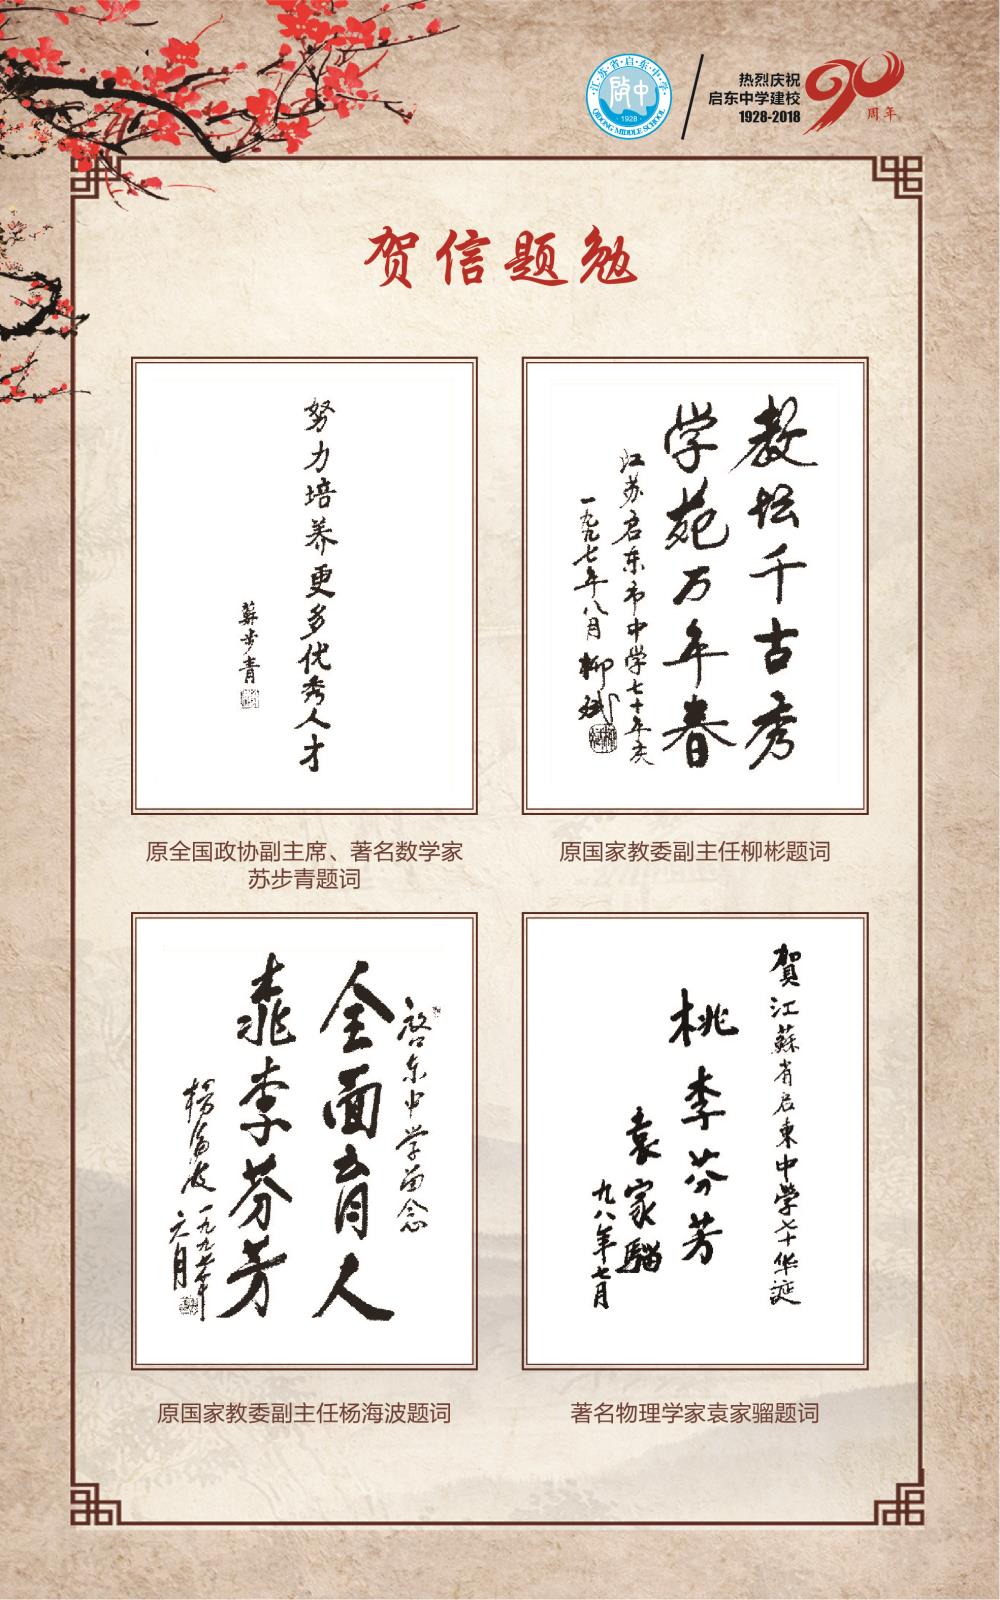 江苏省启东中学
啟中
1928
QIDONG MIDDLE SCHOOL
热烈庆祝
启东中学建校
1928-2018
90
周年
贺信题勉
努力培养更多优秀人才
蘇步青
教坛千古秀
学苑万年春
江苏启东市中学七十年庆
一九九七年八月 柳斌
原全国政协副主席、著名数学家
苏步青题词
原国家教委副主任柳彬题词
启东中学留念
全面育人
桃李芬芳
杨海波 一九九七年
六月
賀江蘇省启東中学七十华诞
桃李芬芳
袁家騮
九八年七月
原国家教委副主任杨海波题词
著名物理学家袁家骝题词